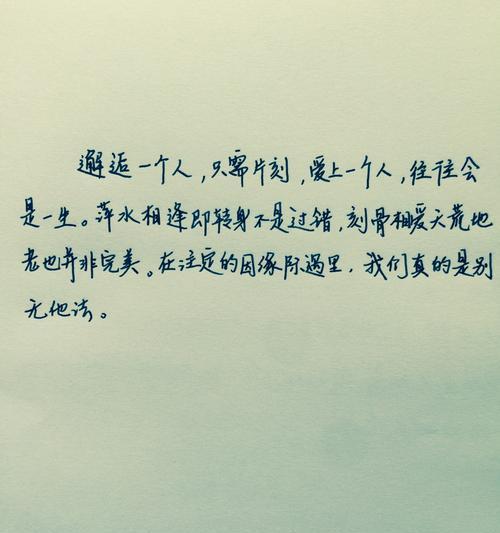 邂逅一个人,只需片刻,爱上一个人,往往会
是一生。萍水相逢即转身不是过错,刻骨相爱天荒地
老也并非完美。在注定的因缘际遇里,我们真的是别
无他法。